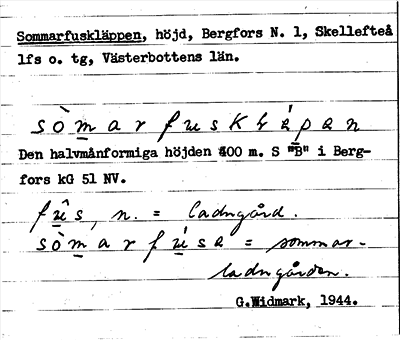 Sommarfuskläppen, höjd, Bergfors N. 1, Skellefteå
lfs o. tg, Västerbottens län.
sò̀mar fusklépan
Den halvmånformiga höjden 400 m. S "B" i Berg-
fors kG 51 NV.
fùs, n. = ladugård.
sòmar fúsa = sommar-
ladugården.
G.Widmark, 1944.